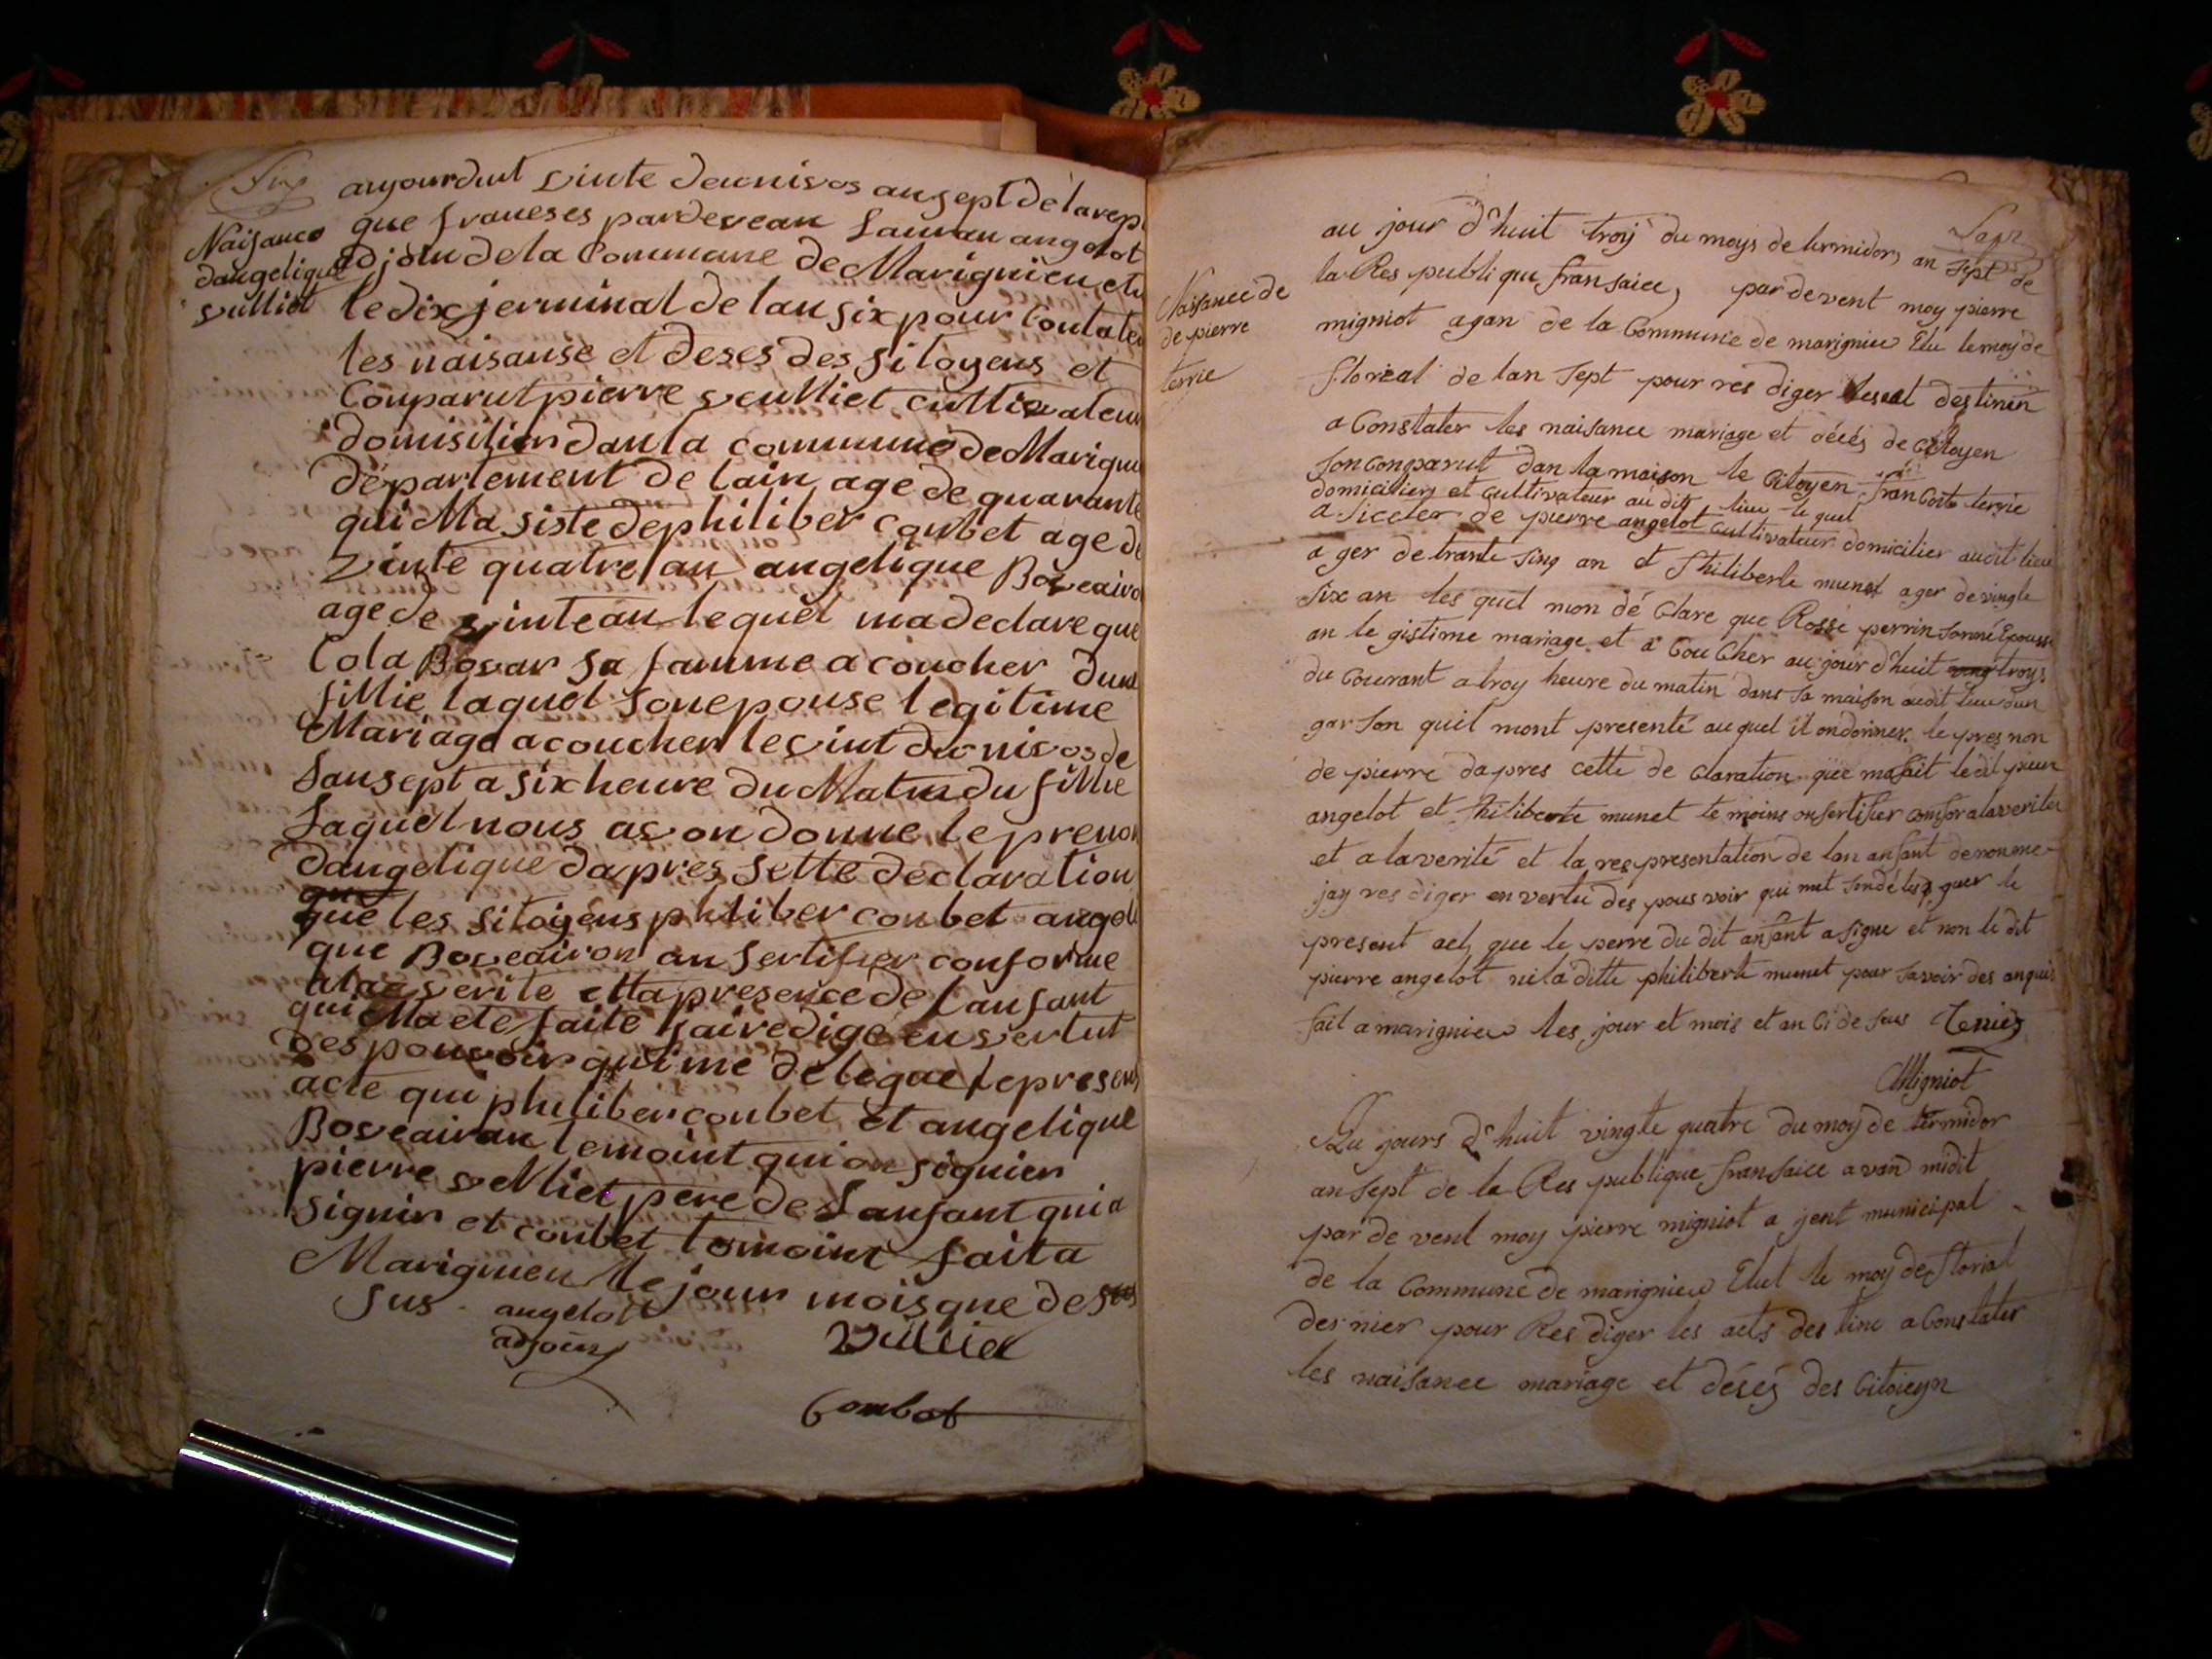 Six
Naisance
dangelique
vulliet
aujourduit vinte deunivos ansept de la rep
que franeses pardevean Lauran angelot
adjoin de la Commune de Marignieu elu
le dix jerminal de lan six pour Contater
les naisanse et deses des sitoyens et
Conparut pierre veulliet cultivateur
domisilier dan la commune de Marignieu
département de lain age de quarante
qui Ma siste de philiber coubet age de
vinte quatre an angelique Boveairon
age de vinte an lequel ma declare que
Cola Bovar sa famme a coucher dune
fillie laquel son epouse legitime
Mariage a coucher le vint du nivos de
Lan sept a six heure du Matin du fillie
Laquel nous avon donne le prenon
dangelique dapres sette declaration
que
que les sitoyens philiber coubet angeli
que Boveairon an sertifier conforme
alaa verite etta presence de Lanfant
qui Ma ete faite jai redigé en vertut
des pouvoir qui me delegue le present
acte qui philiber coubet et angelique
Boveairan temoint qui on signier
pierre velliet pere de Lanfant qui a
signir et coubet tomoint faita
Marignieu le jour mois que de sus
sus angelot
adjoin
Vulliet
Coubet
Sept
Naisance de
de pierre
terrie
au jour d'huit troy du moys de termidor an sept de
la Res publique fransaice, pardevent moy pierre
migniot agan de la Commune de marignieu Elu le moy de
floréal de lan sept pour res diger lesact destinin
a Constater les naisance mariage et décés de Citoyen
son Conparut dan la maison le Citoyen franCois terrie
domicilier et cultivateur au dit lieu le quel
a siceter de pierre angelot cultivateur domicilier audit lieu
a ger de trante sinq an et Philiberte munet ager de vingte
six an les quel mon dé Clare que Rosse perrin sonné Epousse
an le gistime mariage et a Cou Cher au jour d'huit ving troys
du Courant a troy heure du matin dans sa maison audit lieu dun
garson quil mont presenté au quel il on donner le pres non
de pierre dapres cette de Claration que mafait ledit pierre
angelot et Philiberte munet te moins on sertifier confor a la veriter
et a la verité et la res presontation de lan anfant denomme
jay res diger en vertu des pous voir qui met son délé guer le
present act que le perre du dit anfant a signe et non le dit
pierre angelot ni la ditte philiberte munet pour savoir des anquis
fait a marignieu les jour et mois et an Ci de sus Teriez
Migniot
Au jours d'huit vingte quatre du moy de termidor
an sept de la Res publique fransaice avan midit
par de vent moy pierre migniot a jent municipal
de la Commune de marignieu Elut le moy de florial
dernier pour Res diger les acts des tine a Constater
les naisance mariage et désés des Citoieyn